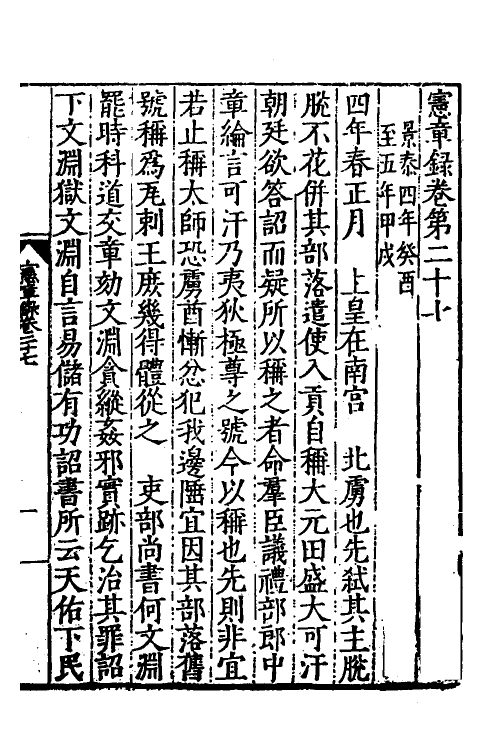 憲章録卷第二十七
景泰四年癸酉
至五年甲戌
四年春正月　上皇在南宮　北虜也先弑其主脱
脱不花併其部落遣使入貢自稱大元田盛大可汗
朝廷欲答詔而疑所以稱之者命羣臣議禮部郎中
章綸言可汗乃夷狄極尊之號今以稱也先則非宜
若止稱太師恐虜酋慚忿犯我邊陲宜因其部落舊
號稱爲瓦剌王庶幾得體從之　吏部尚書何文淵
罷時科道交章劾文淵貪縱姦邪實跡乞治其罪詔
下文淵獄文淵自言易儲有功詔書所云天佑下民
憲章錄卷二十七
一